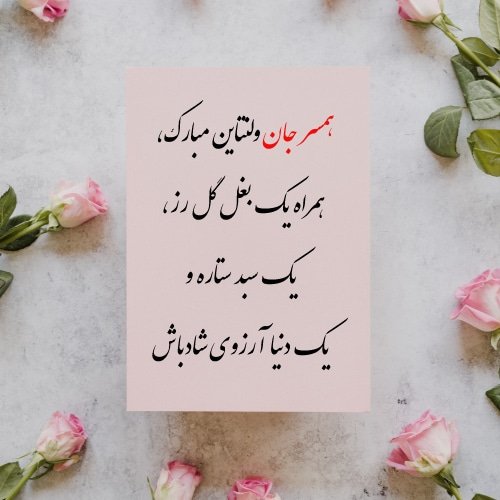 همسر جان ولنتاین مبارک،
همراه یک بغل گل رز،
یک سبد ستاره و
یک دنیا آرزوی شادباش